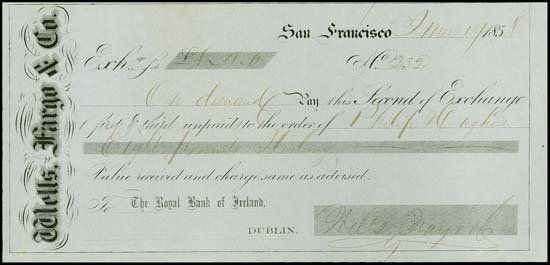 Wells, Fargo & Co.
San Francisco 1858
Exch. for £8. No.
On demand Pay this Second of Exchange
first & third unpaid to the order of Philip
Eight pounds Sterling
Value received and charge same as advised.
To The Royal Bank of Ireland,
DUBLIN. Wells Fargo & Co